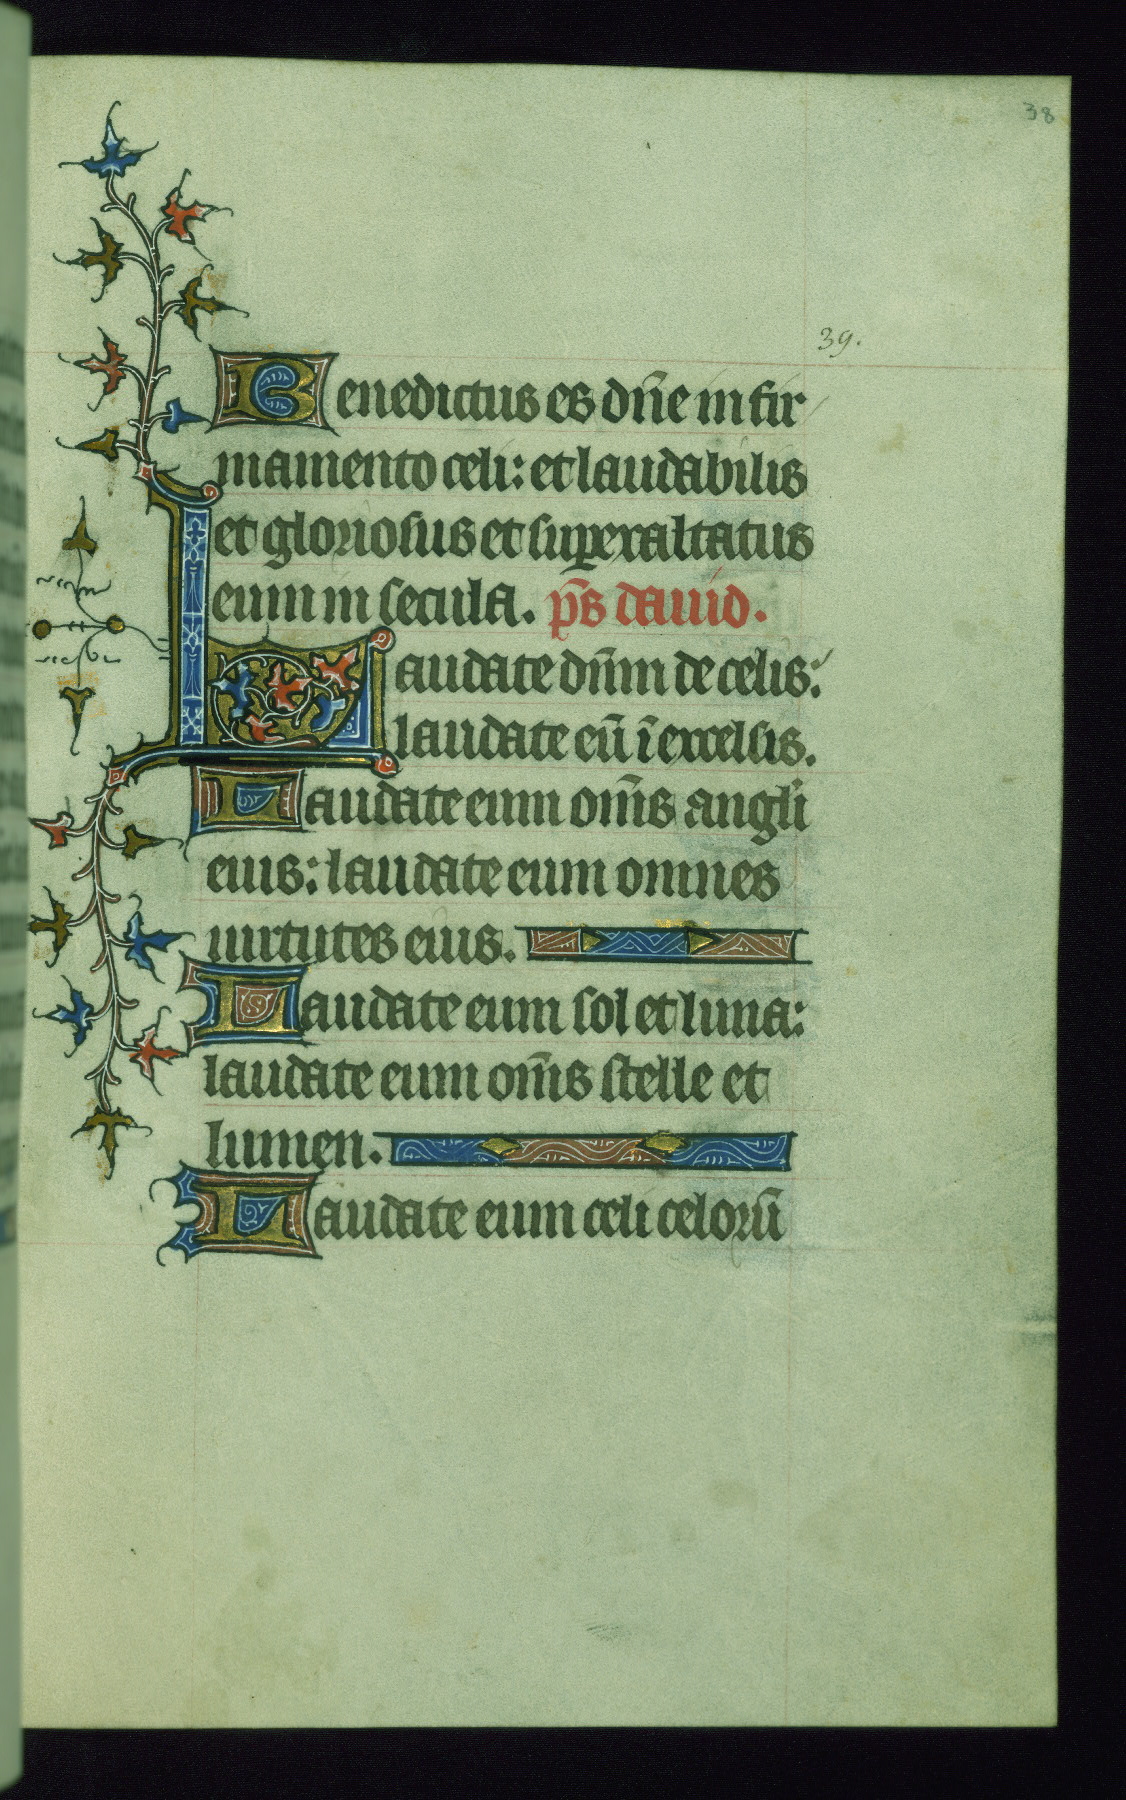 38
39.
Benedictus es dn̄e in fir
mamento celi: et laudabilis
et gloriosus et superaltatus
eum in secula. ps̄ dauid.
Laudate dn̄m de celis:
laudate eū ī excelsis.
Laudate eum om̄s angli
eius: laudate eum omnes
uirtutes eius.
Laudate eum sol et luna:
laudate eum om̄s stelle et
lumen.
Laudate eum celi celorū